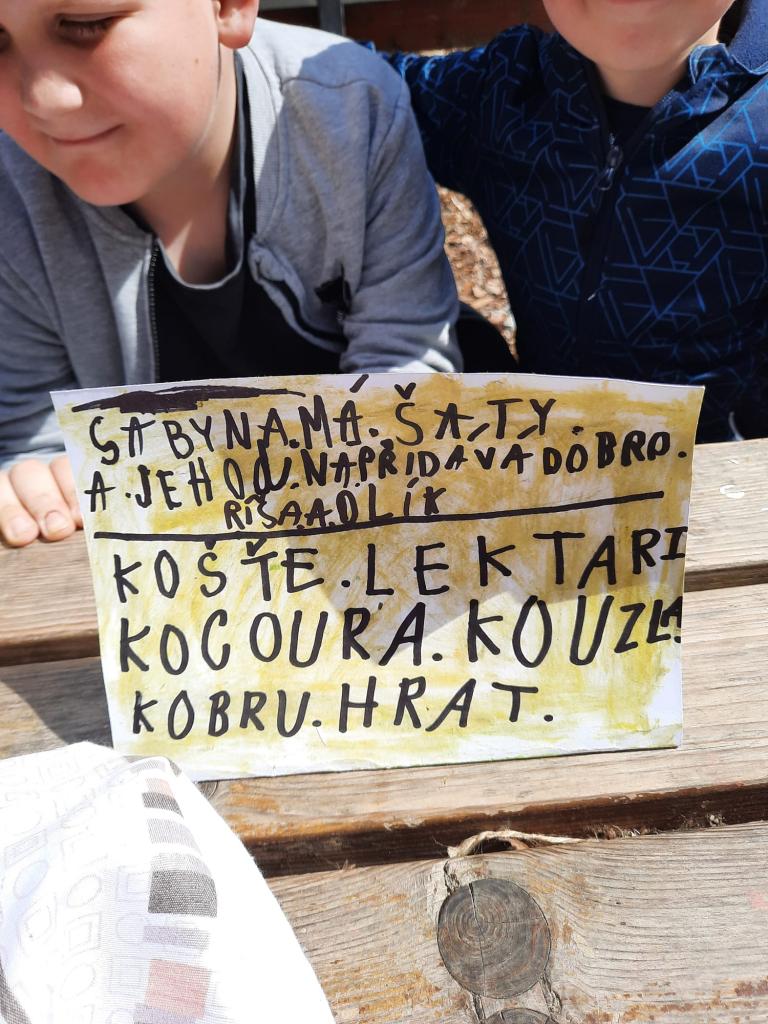 SABYNA.MÁ.ŠA,T,Y.
A.JEHOU.NAPŘIDAVADOBRO.
RÍŠA.A.OLÍK
KOŠTĚ.LEKTARI
KOCOURA.KOUZLA.
KOBRU.HRAT.